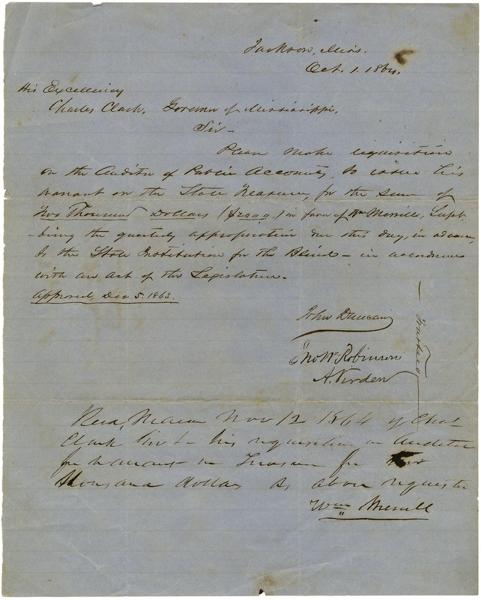 Jackson, Miss.
Oct. 1. 1864.
His Excellency
Charles Clark, Governor of Mississippi,
Sir—
Please make requisition
on the Auditor of Public Accounts, to issue his
warrant on the State Treasurer, for the sum of
Two Thousand Dollars ($2000) in favor of Wm Merrill, Supt
being the quarterly appropriation due this day, in advance,
to the State Institution for the Blind — in accordance
with an act of the Legislature.
Approved, Dec 5. 1863.
John Duncan
Jno W. Robinson
A. Virden
Trustees
Recd, Macon Nov 12 1864 of Chas
Clark Gov his requisition on Auditor
for warrant on Treasurer for two
thousand dollars as above requested
Wm Merrill